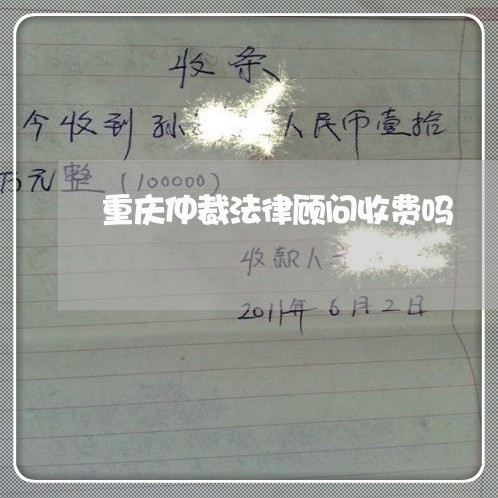 收条
今收到孙 人民币壹拾
万元整(100000)
重庆仲裁法律顾问收费吗
收款人
2011年6月2日